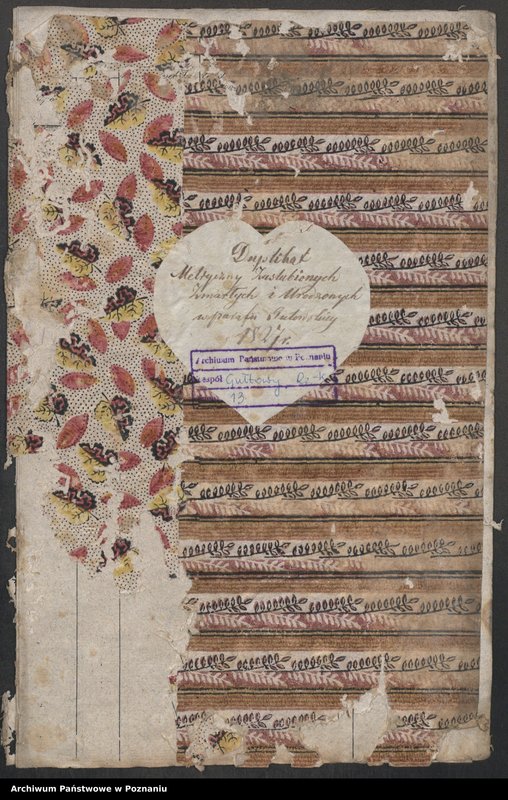 Duplikat
Metryczny Zaślubionych
Zmarłych i Urodzonych
w parafii
1827 r.
Archiwum Państwowe w Poznaniu
Zespół Gułtowy
13
Archiwum Państwowe w Poznaniu